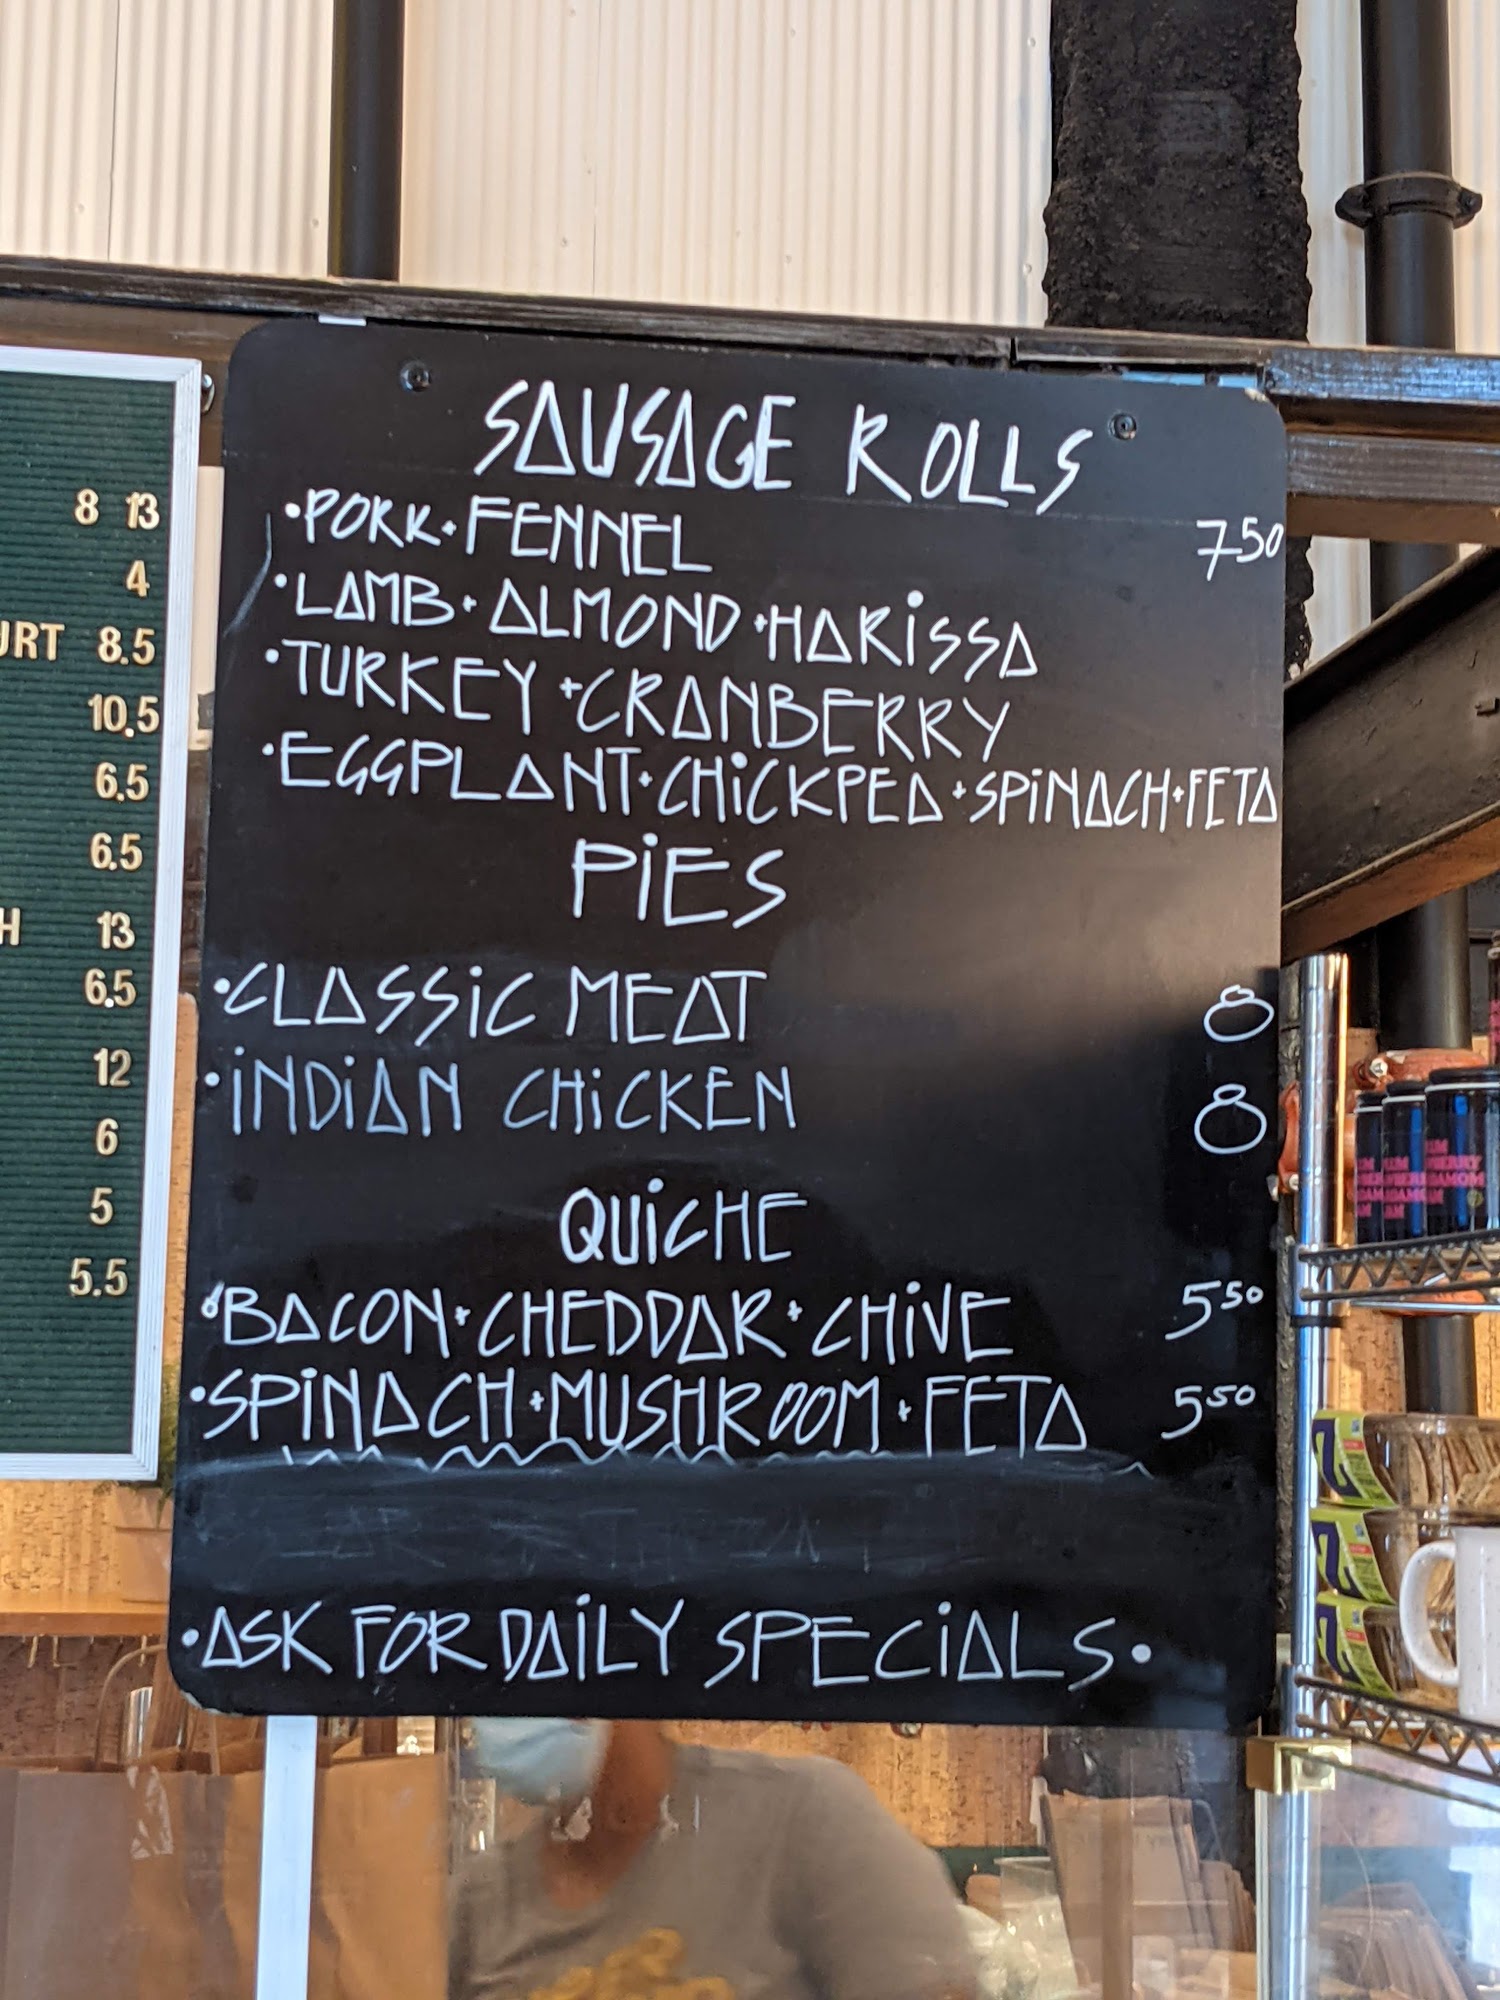 SAUSAGE ROLLS
•PORK+FENNEL 7.50
•LAMB+ALMOND+HARiSSA
•TURKEY+CRANBERRY
•EGGPLANT+CHiCKPEA+SPiNACH+FETA
PiES
•CLASSiC MEAT 8
•iNDiAN CHiCKEN 8
QUiCHE
•BACON+CHEDDAR+CHiVE 5.50
•SPiNACH+MUSHROOM+FETA 5.50
•ASK FOR DAiLY SPECiALS•
8 13
4
URT 8.5
10.5
6.5
6.5
H 13
6.5
12
6
5
5.5